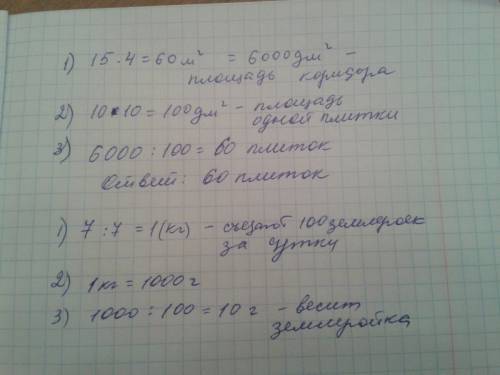 1) 15·4=60м² = 6000дм² –
площадь коридора
2) 10·10=100дм² – площадь
одной плитки
3) 6000:100=60 плиток
Ответ: 60 плиток
1) 7:7=1(кг) – съедают 100 землероек
за сутки
2) 1кг=1000г
3) 1000:100=10г – весит
землеройка